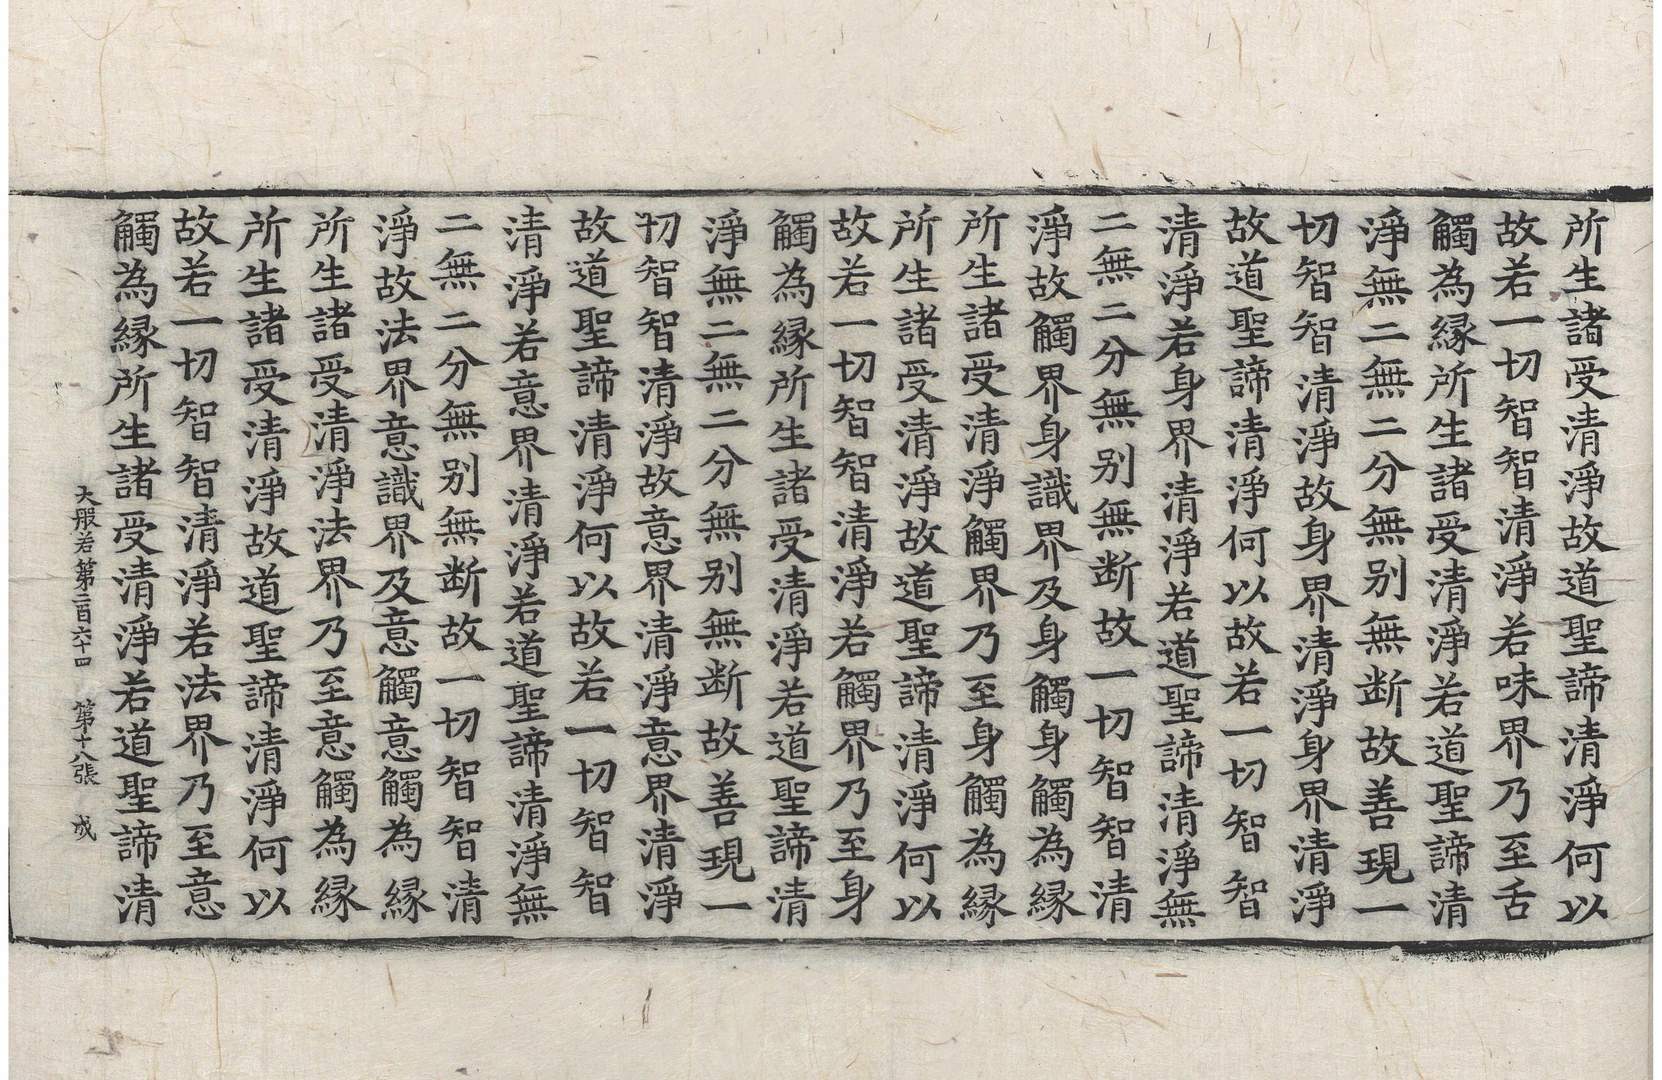 所生諸受清淨故道聖諦清淨何以
故若一切智智清淨若味界乃至舌
觸為縁所生諸受清淨若道聖諦清
淨無二無二分無别無断故善現一
切智智清淨故身界清淨身界清淨
故道聖諦清淨何以故若一切智智
清淨若身界清淨若道聖諦清淨無
二無二分無别無断故一切智智清
淨故觸界身識界及身觸身觸為縁
所生諸受清淨觸界乃至身觸為縁
所生諸受清淨故道聖諦清淨何以
故若一切智智清淨若觸界乃至身
觸為縁所生諸受清淨若道聖諦清
淨無二無二分無别無断故善現一
切智智清淨故意界清淨意界清淨
故道聖諦清淨何以故若一切智智
清淨若意界清淨若道聖諦清淨無
二無二分無别無断故一切智智清
淨故法界意識界及意觸意觸為縁
所生諸受清淨法界乃至意觸為縁
所生諸受清淨故道聖諦清淨何以
故若一切智智清淨若法界乃至意
觸為縁所生諸受清淨若道聖諦清
大般若第二百六十四 第十八張 成